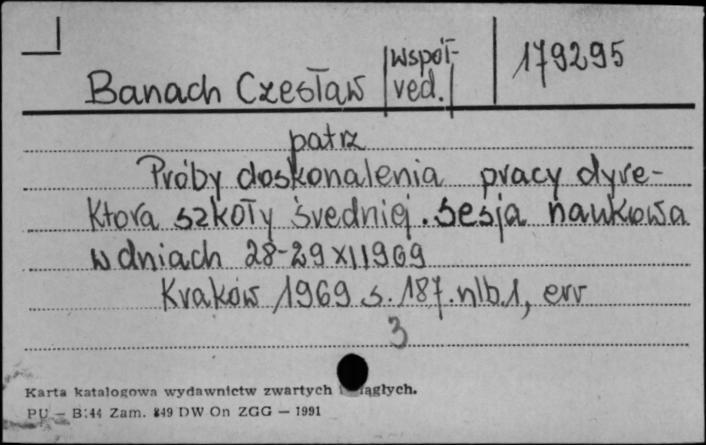 Banach Czesław |współ-
ved.| 179295
patrz
Próby doskonalenia pracy dyre-
ktora szkoły średniej. Sesja naukowa
w dniach 28-29 XI 1969
Kraków 1969 s. 187. nlb. 1, err
3
Karta katalogowa wydawnictw zwartych i ciągłych.
PU — B:44 Zam. 849 DW On ZGG — 1991